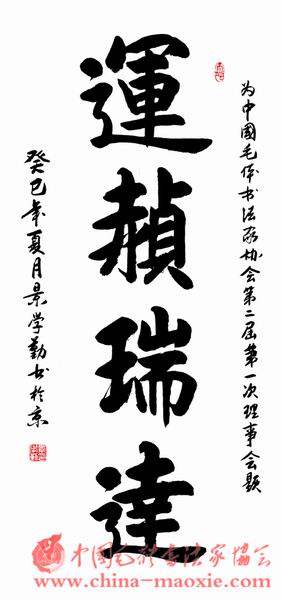 为中國毛体书法家协会第二届第一次理事会题
運赬瑞達
癸巳年夏月景学勤书於京
中國毛體書法家協會
www.china-maoxie.com